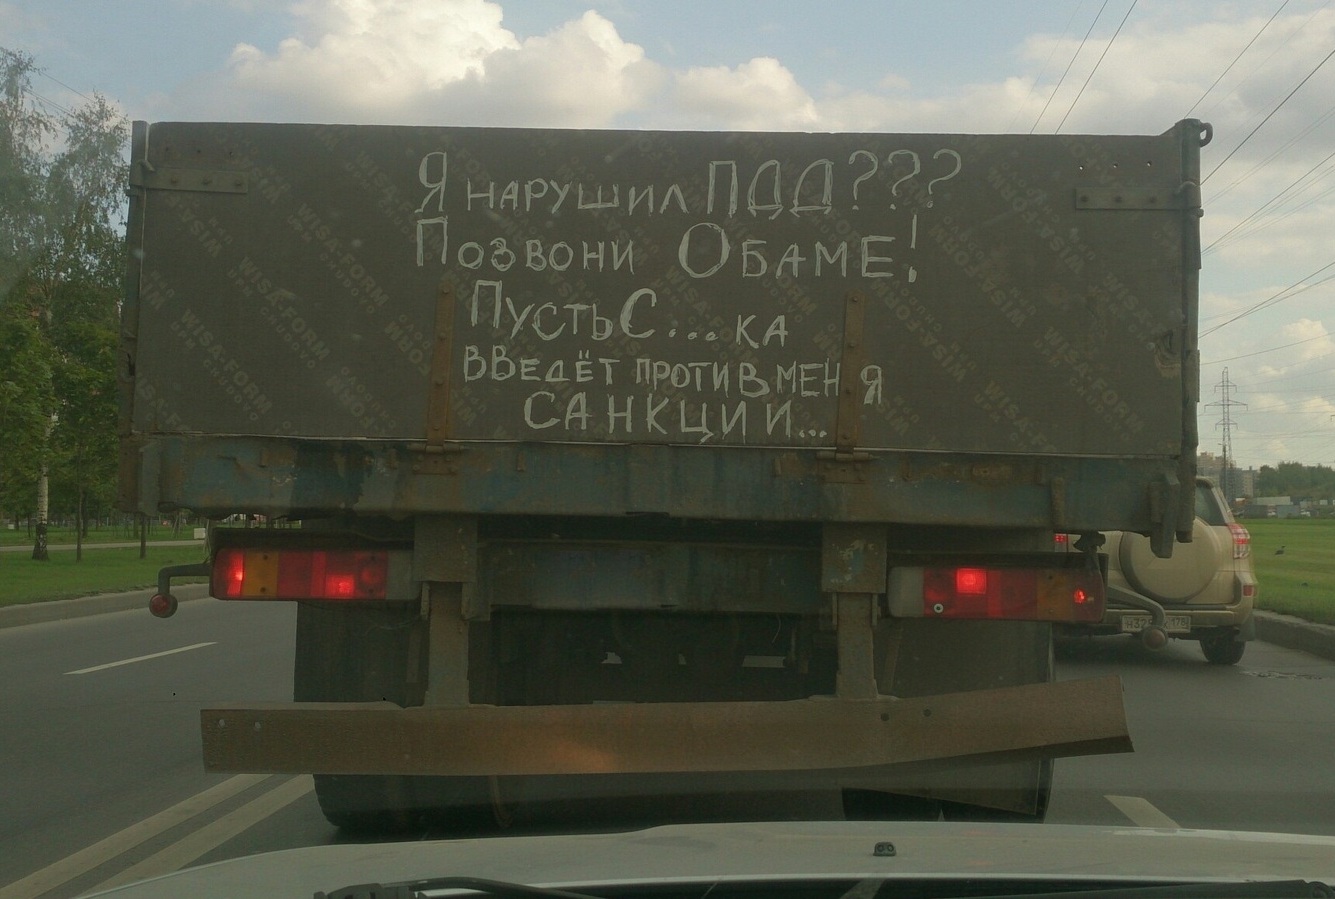 Я НАРУШИЛ ПДД???
ПОЗВОНИ ОБАМЕ!
ПУСТЬ С...КА
ВВЕДЁТ ПРОТИВ МЕНЯ
САНКЦИИ...
WISA-FORM
WISA-FORM
WISA-FORM
WISA-FORM
WISA-FORM
WISA-FORM